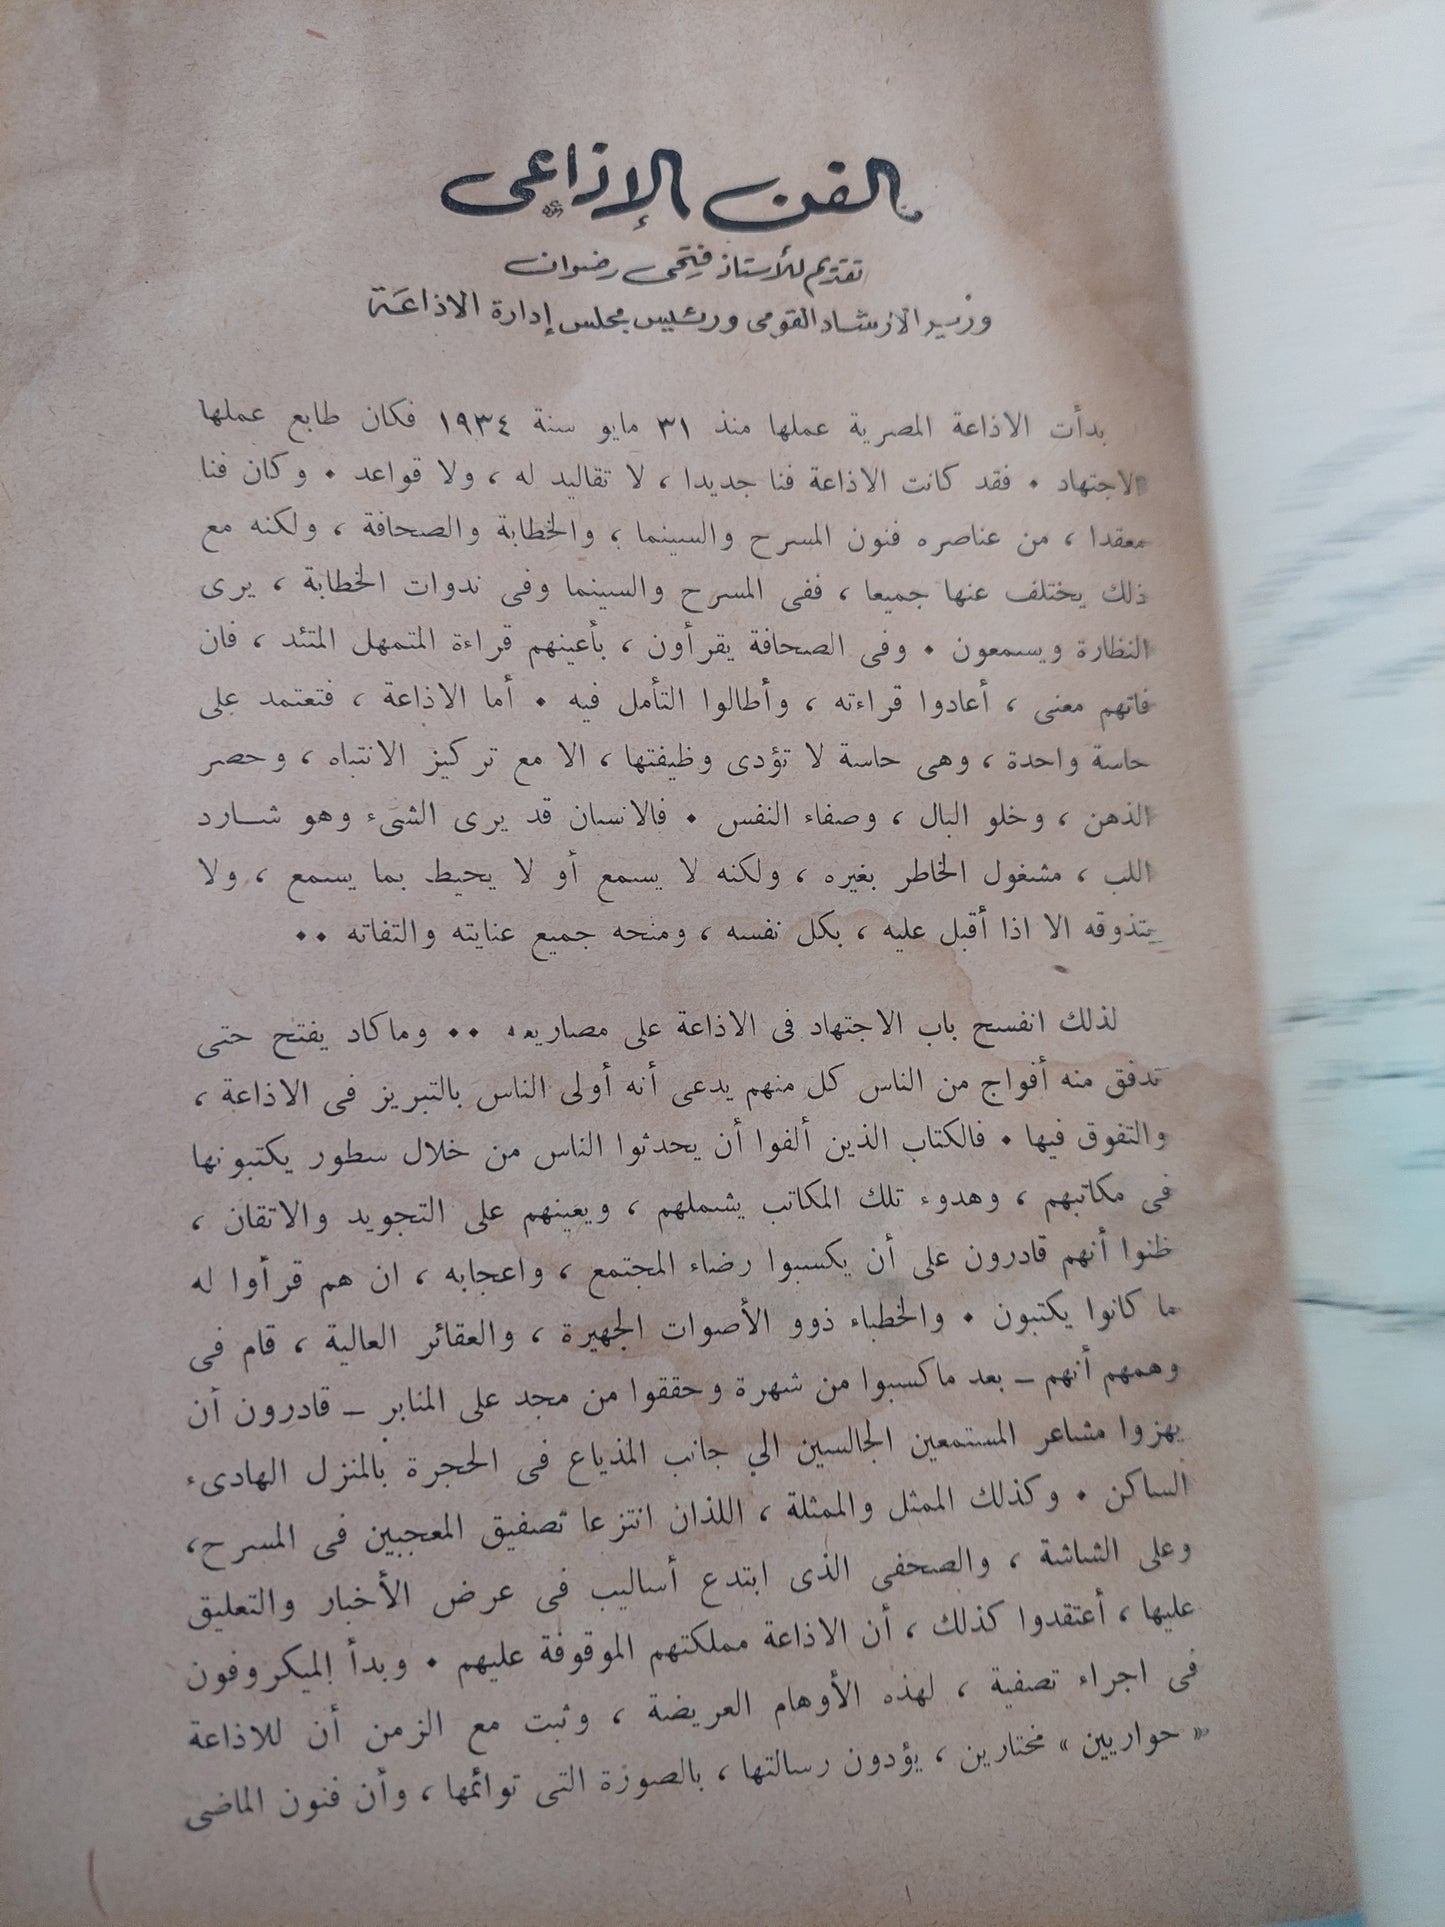 الفن الإذاعى
تقديم للأستاذ فتحى رضوان
وزير الارشاد القومى ورئيس مجلس إدارة الاذاعة
بدأت الاذاعة المصرية عملها منذ ٣١ مايو سنة ١٩٣٤ فكان طابع عملها
الاجتهاد ٠ فقد كانت الاذاعة فنا جديدا ، لا تقاليد له ، ولا قواعد ٠ وكان فنا
معقدا ، من عناصره فنون المسرح والسينما ، والخطابة والصحافة ، ولكنه مع
ذلك يختلف عنها جميعا ، ففى المسرح والسينما وفى ندوات الخطابة ، يرى
النظارة ويسمعون ٠ وفى الصحافة يقرأون ، بأعينهم قراءة المتمهل المتئد ، فان
فاتهم معنى ، أعادوا قراءته ، وأطالوا التأمل فيه ٠ أما الاذاعة ، فتعتمد على
حاسة واحدة ، وهى حاسة لا تؤدى وظيفتها ، الا مع تركيز الانتباه ، وحصر
الذهن ، وخلو البال ، وصفاء النفس ٠ فالانسان قد يرى الشىء وهو شـارد
اللب ، مشغول الخاطر بغيره ، ولكنه لا يسمع أو لا يحيط بما يسمع ، ولا
يتذوقه الا اذا أقبل عليه ، بكل نفسه ، ومنحه جميع عنايته والتفاته ٠٠
لذلك انفسح باب الاجتهاد فى الاذاعة على مصاريعه ٠٠ وماكاد يفتح حتى
تدفق منه أفواج من الناس كل منهم يدعى أنه أولى الناس بالتبريز فى الاذاعة ،
والتفوق فيها ٠ فالكتاب الذين ألفوا أن يحدثوا الناس من خلال سطور يكتبونها
فى مكاتبهم ، وهدوء تلك المكاتب يشملهم ، ويعينهم على التجويد والاتقان ،
ظنوا أنهم قادرون على أن يكسبوا رضاء المجتمع ، واعجابه ، ان هم قرأوا له
ما كانوا يكتبون ٠ والخطباء ذوو الأصوات الجهيرة ، والعقائر العالية ، قام فى
وهمهم أنهم – بعد ماكسبوا من شهرة وحققوا من مجد على المنابر – قادرون أن
يهزوا مشاعر المستمعين الجالسين الي جانب المذياع فى الحجرة بالمنزل الهادىء
الساكن ٠ وكذلك الممثل والممثلة ، اللذان انتزعا تصفيق المعجبين فى المسرح،
وعلى الشاشة ، والصحفى الذى ابتدع أساليب فى عرض الأخبار والتعليق
عليها ، أعتقدوا كذلك ، أن الاذاعة مملكتهم الموقوفة عليهم ٠ وبدأ الميكروفون
فى اجراء تصفية ، لهذه الأوهام العريضة ، وثبت مع الزمن أن للاذاعة
« حواريين » مختارين ، يؤدون رسالتها ، بالصورة التى توائمها ، وأن فنون الماضى